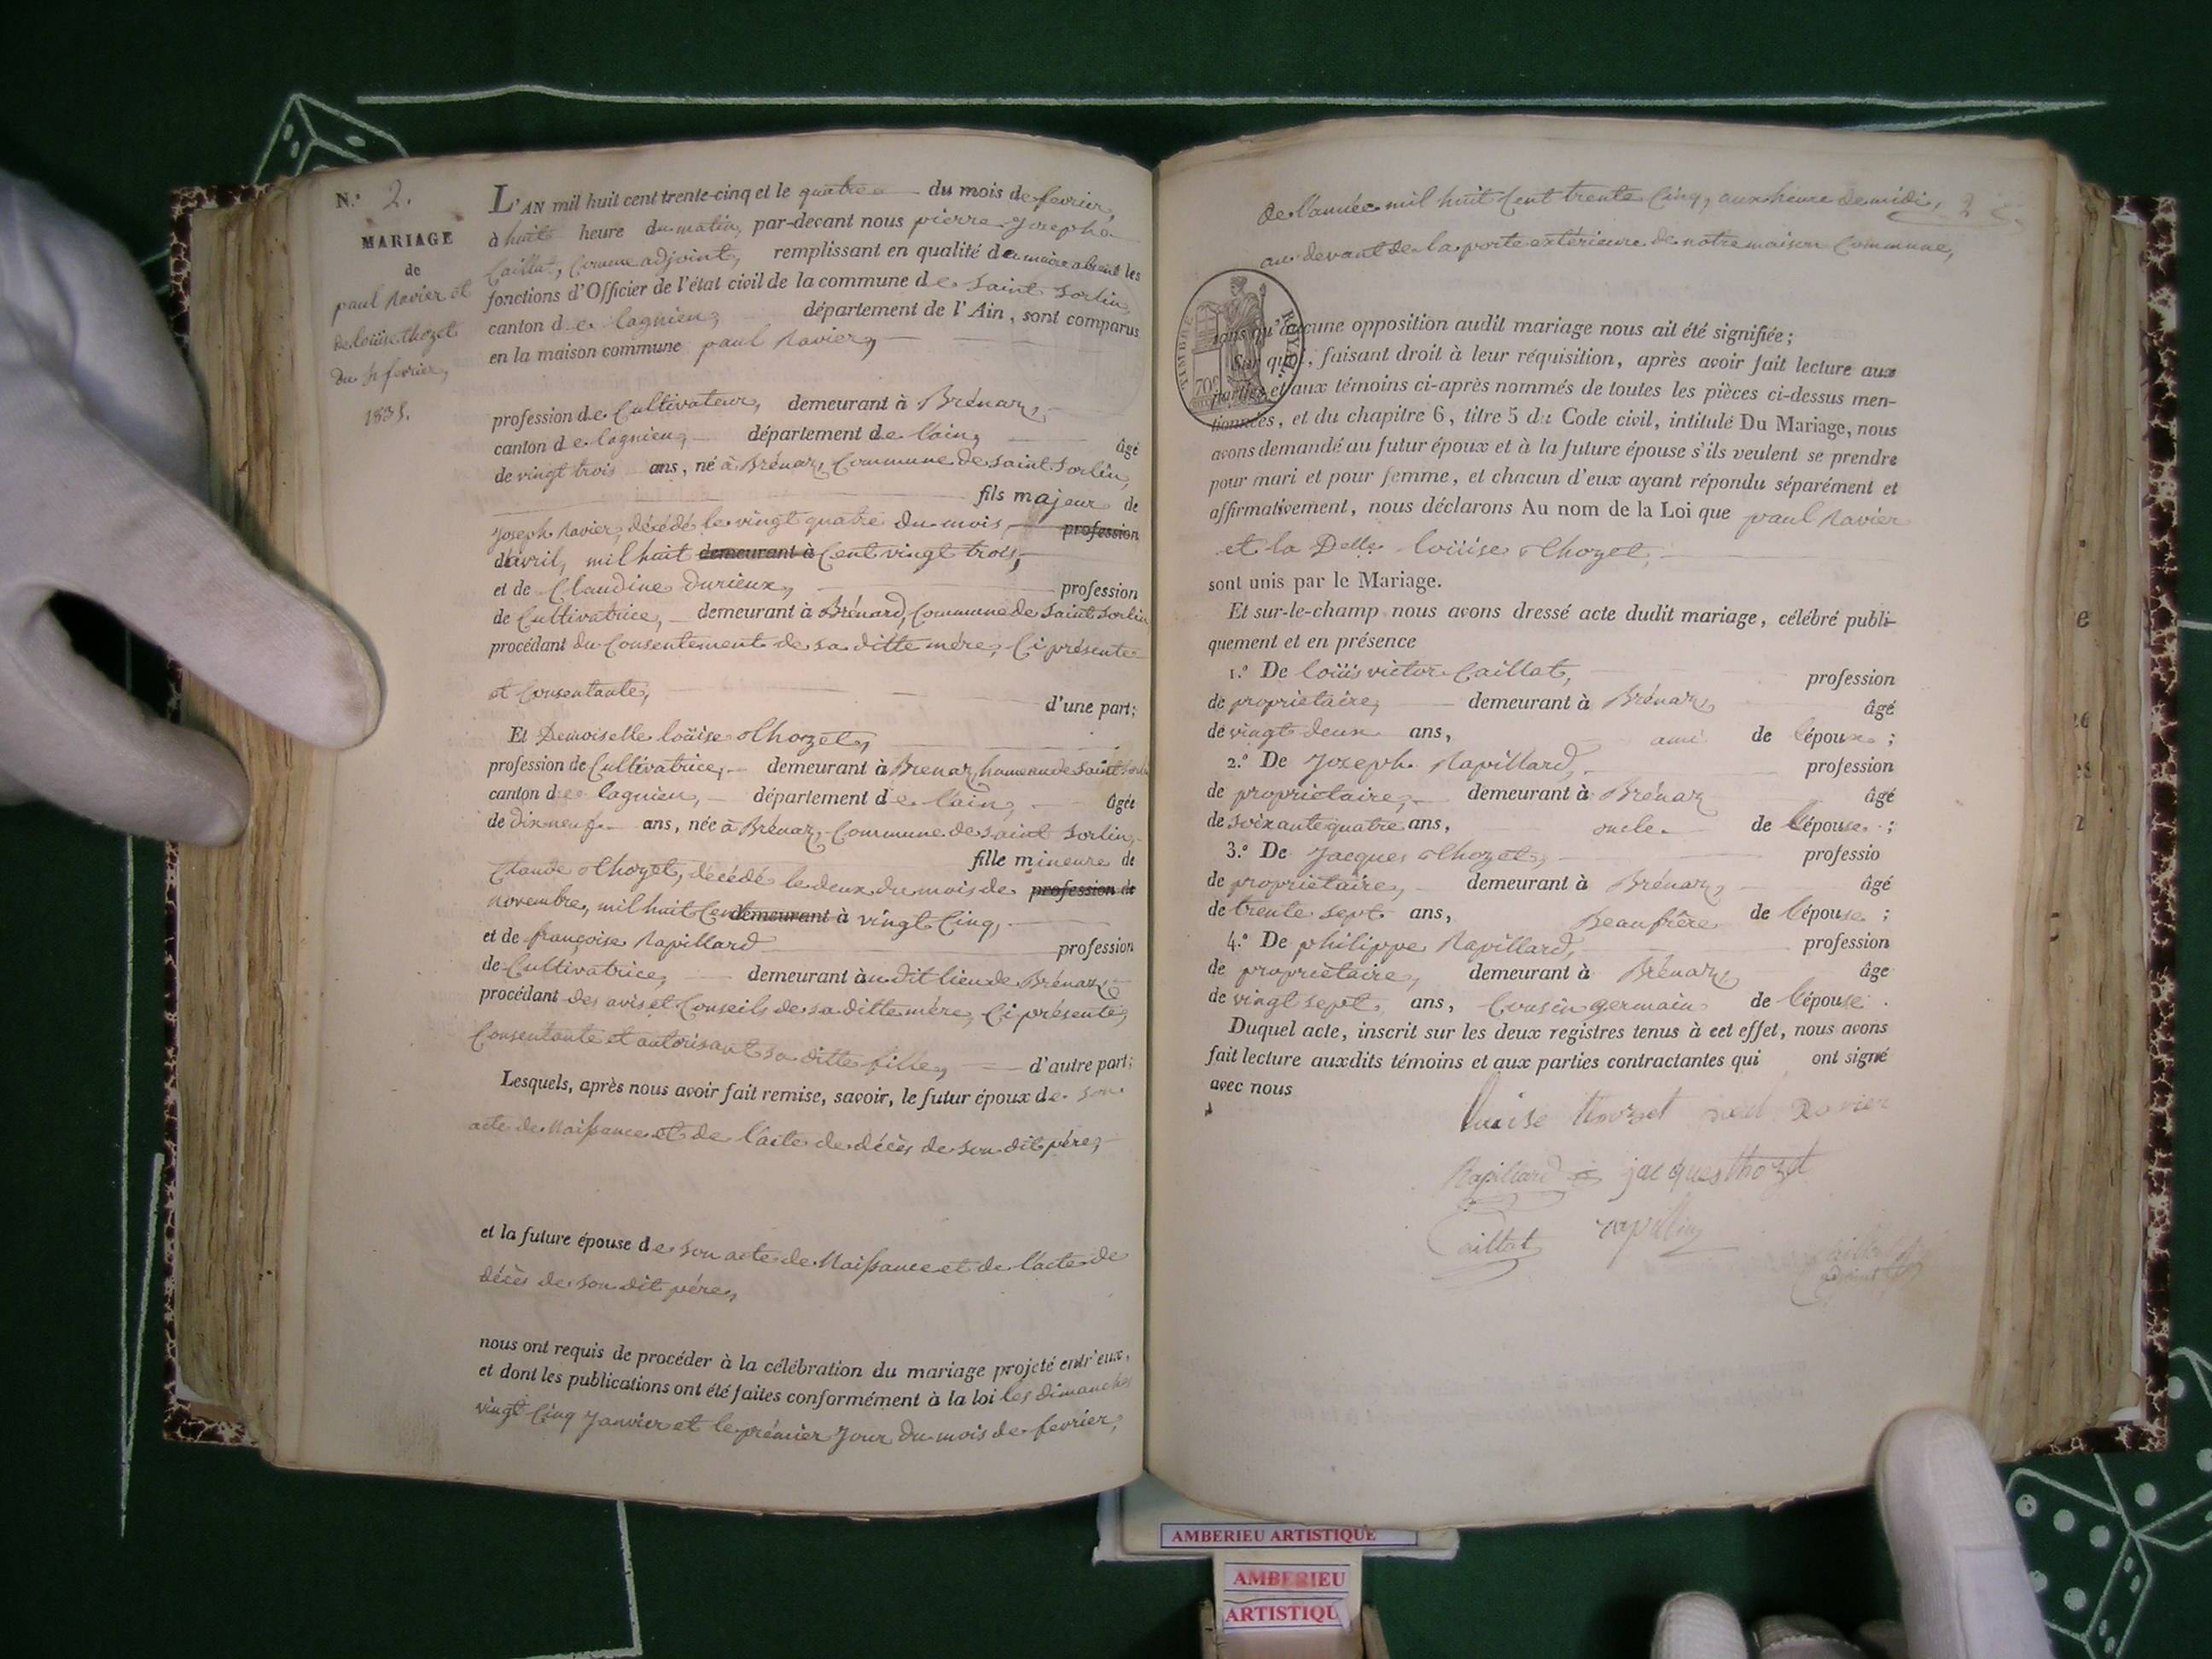 N.° 2.
MARIAGE
de
paul Ravier et
de loüise thozet
du 4 fevrier,
1835.
L'AN mil huit cent trente-cinq et le quatre du mois de fevrier,
à huit heure du matin, par-devant nous pierre Joseph
Caillat, comme adjoint, remplissant en qualité de maire absent les
fonctions d'Officier de l'état civil de la commune de Saint Sorlin,
canton de lagnieu, département de l'Ain, sont comparus
en la maison commune paul Ravier,
profession de Cultivateur, demeurant à Brénaz,
canton de lagnieu, département de l'ain, âgé
de vingt trois ans, né à Brénaz, Commune de Saint Sorlin,
fils majeur de
Joseph Ravier, décédé le vingt quatre du mois profession
d'avril, mil huit demeurant à Cent vingt trois,
et de Claudine Durieux, profession
de Cultivatrice, demeurant à Brénard, Commune de Saint Sorlin
procédant du Consentement de sa ditte mére, Ci présente
et Consentante, d'une part;
Et Demoiselle loüise thozet,
profession de Cultivatrice, demeurant à Brenaz, hameau de Saint Sorlin
canton de lagnieu, département de l'ain, âgée
de dix neuf ans, née à Brénaz, Commune de Saint Sorlin,
fille mineure de
Claude thozet, décédé le deux du mois de profession de
novembre, mil huit Cent demeurant à vingt Cinq,
et de françoise Rapillard profession
de Cultivatrice, demeurant àudit lieu de Brénaz,
procédant des avis et Conseils de sa ditte mére, Ci présente,
Consentante et autorisant sa ditte fille, d'autre part;
Lesquels, après nous avoir fait remise, savoir, le futur époux de son
acte de Naissance et de l'acte de décès de son dit pére,
et la future épouse de son acte de Naissance et de l'acte de
décès de son dit pére,
nous ont requis de procéder à la célébration du mariage projeté entr'eux,
et dont les publications ont été faites conformément à la loi les dimanches
vingt Cinq Janvier et le prémier Jour du mois de fevrier,
de l'année mil huit Cent trente Cinq, aux heure de midi, 2
au devant de la porte extérieure de notre maison Commune,
TIMBRE ROYAL
70c
sans qu'aucune opposition audit mariage nous ait été signifiée;
Sur quoi, faisant droit à leur réquisition, après avoir fait lecture aux
parties et aux témoins ci-après nommés de toutes les pièces ci-dessus men-
tionnées, et du chapitre 6, titre 5 du Code civil, intitulé Du Mariage, nous
avons demandé au futur époux et à la future épouse s'ils veulent se prendre
pour mari et pour femme, et chacun d'eux ayant répondu séparément et
affirmativement, nous déclarons Au nom de la Loi que paul Ravier
et la Delle loüise thozet,
sont unis par le Mariage.
Et sur-le-champ nous avons dressé acte dudit mariage, célébré publi-
quement et en présence
1.° De loüis victor Caillat, profession
de propriétaire, demeurant à Brénaz, âgé
de vingt deux ans, ami de l'époux;
2.° De Joseph Rapillard, profession
de propriétaire, demeurant à Brénaz âgé
de soixante quatre ans, oncle de l'épouse;
3.° De Jacques thozet, professio
de propriétaire, demeurant à Brénaz, âgé
de trente sept ans, Beaufrère de l'épouse;
4.° De philippe Rapillard, profession
de propriétaire, demeurant à Brénaz, âge
de vingt sept ans, Cousin germain de l'épouse.
Duquel acte, inscrit sur les deux registres tenus à cet effet, nous avons
fait lecture auxdits témoins et aux parties contractantes qui ont signé
avec nous
luise thozet paul Ravier
Rapillard jacques thozet
Caillat rapillard
Caillat
adjoint
AMBERIEU ARTISTIQUE
AMBERIEU
ARTISTIQU